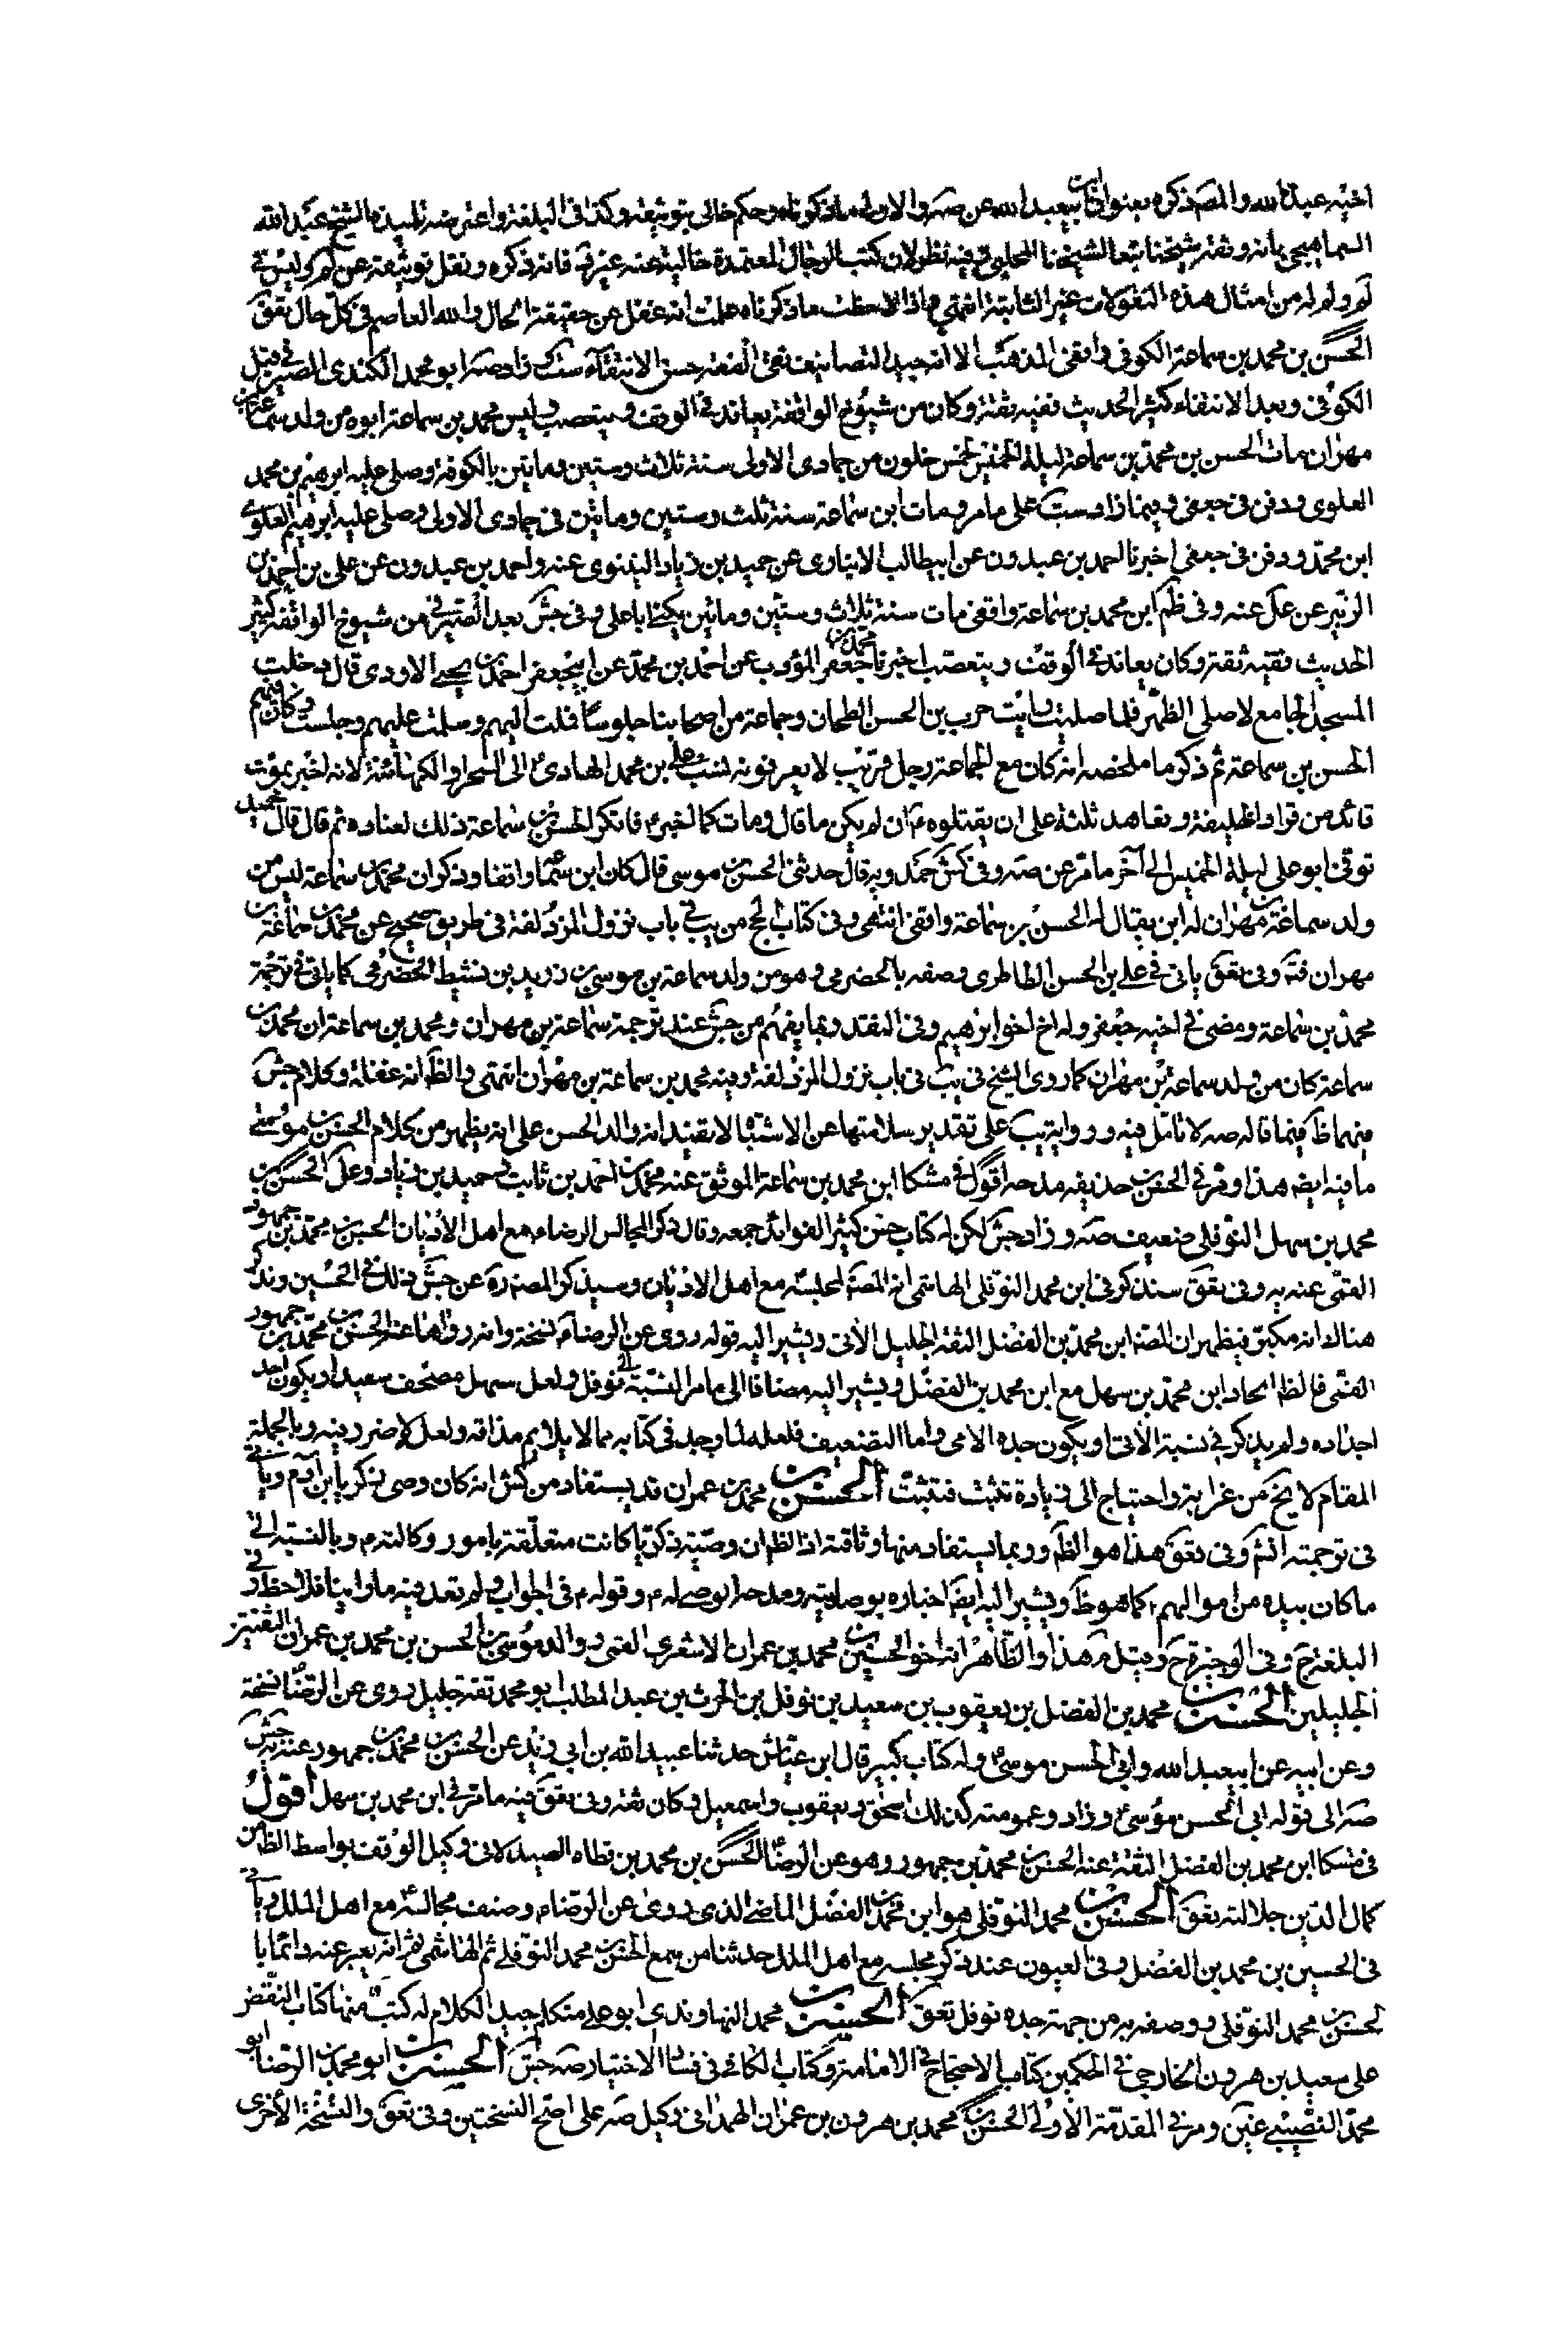 اخيه عبد الله والمص ذكره بعنوان ابن ابيعبد الله عن صه والاولى ما ذكرناه وحكم خالى بتوثيقه وكذا فى البلغة واعترضه تلميذه الشيخ عبد الله
السماهيجى بانه وثقه شيخنا تبعا لشيخنا المجلسى وفيه نظر لان كتب الرجال المعتمدة خالية عنه غير د فانه ذكره ونقل توثيقه عن لم وليس فى
لم ولم له من امثال هذه النقولات غير الثابتة انتهى واذا لاحظت ما ذكرناه علمت انه غفل عن حقيقة الحال والله العاصم فى كل حال تعق
الحسن بن محمد بن سماعة الكوفى واقفى المذهب الا انه جيد التصانيف نقى الفقه حسن الانتقاء ست وزاد صه ابو محمد الكندى الصيرفى قبل
الكوفى وبعد الانتقاء كثير الحديث فقيه ثقة وكان من شيوخ الواقفة يعاند فى الوقف ويتعصب وليس محمد بن سماعة ابوه من ولد سماعة بن
مهران مات الحسن بن محمد بن سماعة ليلة الخميس لخمس خلون من جمادى الاولى سنة ثلاث وستين وماتين بالكوفة وصلى عليه ابرهيم بن محمد
العلوى ودفن فى جعفى وفيما زاد ست على ما مر ومات ابن سماعة سنة ثلث وستين وماتين فى جمادى الاولى وصلى عليه ابرهيم العلوى
ابن محمد ودفن فى جعفى اخبرنا احمد بن عبدون عن ابيطالب الانبارى عن حميد بن زياد النينوى عنه واحمد بن عبدون عن على بن احمد بن
الزبير عن على عنه وفى ظم ابن محمد بن سماعة واقفى مات سنة ثلاث وستين وماتين يكنى ابا على وفى جش بعد الصيرفى من شيوخ الواقفة كثير
الحديث فقيه ثقة وكان يعاند فى الوقف ويتعصب اخبرنا محمد بن جعفر المؤدب عن احمد بن محمد عن ابيجعفر احمد بن يحيى الاودى قال دخلت
المسجد الجامع لاصلى الظهر فلما صليت رايت حرب بن الحسن الطحان وجماعة من اصحابنا جلوسا فملت اليهم وسلمت عليهم وجلست وكان فيهم
الحسن بن سماعة ثم ذكر ما ملخصه انه كان مع الجماعة رجل غريب لا يعرفونه نسب على بن محمد الهادى ع الى السحر او الكهانة لانه اخبر بموت
قائد من قواد الخليفة وتعاهد ثلثة على ان يقتلوه ع ان لم يكن ما قال ومات كما اخبر ع فانكر الحسن بن سماعة ذلك لعناده ثم قال قال حميد
توفى ابو على ليلة الخميس الى آخر ما مر عن صه وفى كش حمدويه قال حدثنى الحسن بن موسى قال كان ابن سماعة واقفا وذكر ان محمد بن سماعة ليس من
ولد سماعة بن مهران له ابن يقال له الحسن بن سماعة واقفى انتهى وفى كتاب الحج من يب فى باب نزول المزدلفة فى طريق صحيح عن محمد بن سماعة بن
مهران فت وفى تعق ياتى فى على بن الحسن الطاطرى وصفه بالحضرمى وهو من ولد سماعة بن موسى بن زريد بن نشيط الحضرمى كما ياتى فى ترجمة
محمد بن سماعة ومضى فى اخيه جعفر وله اخ اخر ابرهيم وفى النقد ربما يفهم من جش عند ترجمة سماعة بن مهران ومحمد بن سماعة ان محمد بن
سماعة كان من ولد سماعة بن مهران كما روى الشيخ فى يب فى باب نزول المزدلفة وفيه محمد بن سماعة بن مهران انتهى والظ انه غفلة وكلام جش
فيهما ظ فيما قاله صه لا تامل فيه ورواية يب على تقدير سلامتها عن الاشتباه لا يفيد انه والد الحسن على انه يظهر من كلام الحسن بن موسى
ما فيه ايضا هذا ومر فى الحسن بن حذيفه مدحه اقول فى مشكا ابن محمد بن سماعة الموثق عنه محمد بن احمد بن ثابت وحميد بن زياد وعلى الحسن بن
محمد بن سهل النوفلى ضعيف صه وزاد جش لكن له كتاب حسن كثير الفوائد جمعه وقال ذكر المجالس الرضا ع مع اهل الاديان الحسن بن محمد بن جمهور
القمى عنه به وفى تعق سنذكر فى ابن محمد النوفلى الهاشمى انه المصنف لمجلسه مع اهل الاديان وسيذكر المص ره عن جش ذلك فى الحسين ونذكر
هناك انه مكبر فيظهر ان المص ابن محمد بن الفضل الثقة الجليل الآتى ويشير اليه قوله روى عن الرضا ع نسخة وانه رواها عنه الحسن بن محمد بن جمهور
القمى فالظ اتحاد ابن محمد بن سهل مع ابن محمد بن الفضل ويشير اليه مضافا الى ما مر النسبة الى نوفل ولعل سهل مصحف سعيد او يكون احد
اجداده ولم يذكر فى نسبة الآتى او يكون جده الامى واما التضعيف فلعله لما وجد فى كتابه مما لا يلايم مذاقه ولعل لا ضرر فيه وبالجملة
المقام لا يخ من غرابة واحتياج الى زيادة تثبت فتثبت الحسن بن محمد بن عمران قد يستفاد من كش انه كان وصى زكريا بن آدم وياتى
فى ترجمته انش وفى تعق هذا هو الظ وربما يستفاد منها وثاقته اذ الظ ان وصية زكريا كانت متعلقة بامور وكالته م وبالنسبة الى
ما كان بيده من اموالهم ع كما هو ظ ويشير اليه ايض اخباره بوصايته ومدحه الوصى له م وقوله م فى الجواب ولم تعد فيه ماراينا فلاحظ وفى
البلغة ح وفى الوجيزة ح وقيل م هذا والظاهر انه اخو الحسين بن محمد بن عمران الاشعرى القمى ووالد موسى بن الحسن بن محمد بن عمران الثقتين
الجليلين الحسن بن محمد بن الفضل بن يعقوب بن سعيد بن نوفل بن الحرث بن عبد المطلب ابو محمد ثقة جليل روى عن الرضا ع نسخة
وعن ابيه عن ابيعبد الله وابى الحسن موسى ع وله كتاب كبير قال ابن عياش حدثنا عبيد الله بن ابى زيد عن الحسن بن محمد بن جمهور عنه به جش
صه الى قوله ابى الحسن موسى ع وزاد وعمومته كذلك اسحق ويعقوب واسمعيل وكان ثقة وفى تعق فيه ما مر فى ابن محمد بن سهل اقول
فى مشكا ابن محمد بن الفضل الثقة عنه الحسن بن محمد بن جمهور وهو عن الرضا ع الحسن بن محمد بن قطاه الصيدلانى وكيل الوقف بواسط الظ من
كمال الدين جلالته تعق الحسن بن محمد النوفلى هو ابن محمد بن الفضل الماضى الذى روى عن الرضا م وصنف مجالسه مع اهل الملل وياتى
فى الحسين بن محمد بن الفضل وفى العيون عند ذكر مجلسه مع اهل الملل حدثنا من سمع الحسن بن محمد النوفلى ثم الهاشمى ثم انه يعبر عنه دائما با
لحسن بن محمد النوفلى ووصفه به من جهة جده نوفل تعق الحسن بن محمد النهاوندى ابو على متكلم جيد الكلام له كتب منها كتاب النقض
على سعيد بن هرون الخارجى فى الحكمين كتاب الاحتجاج فى الامامة وكتاب الكافى فى فساد الاختيار صه جش الحسن بن ابو محمد بن الرضا ابو
محمد النصيبى عين ومر فى المقدمة الاولى الحسن بن محمد بن هرون بن عمران الهمدانى وكيل صه على اصح النسختين وفى تعق والنسخة الاخرى